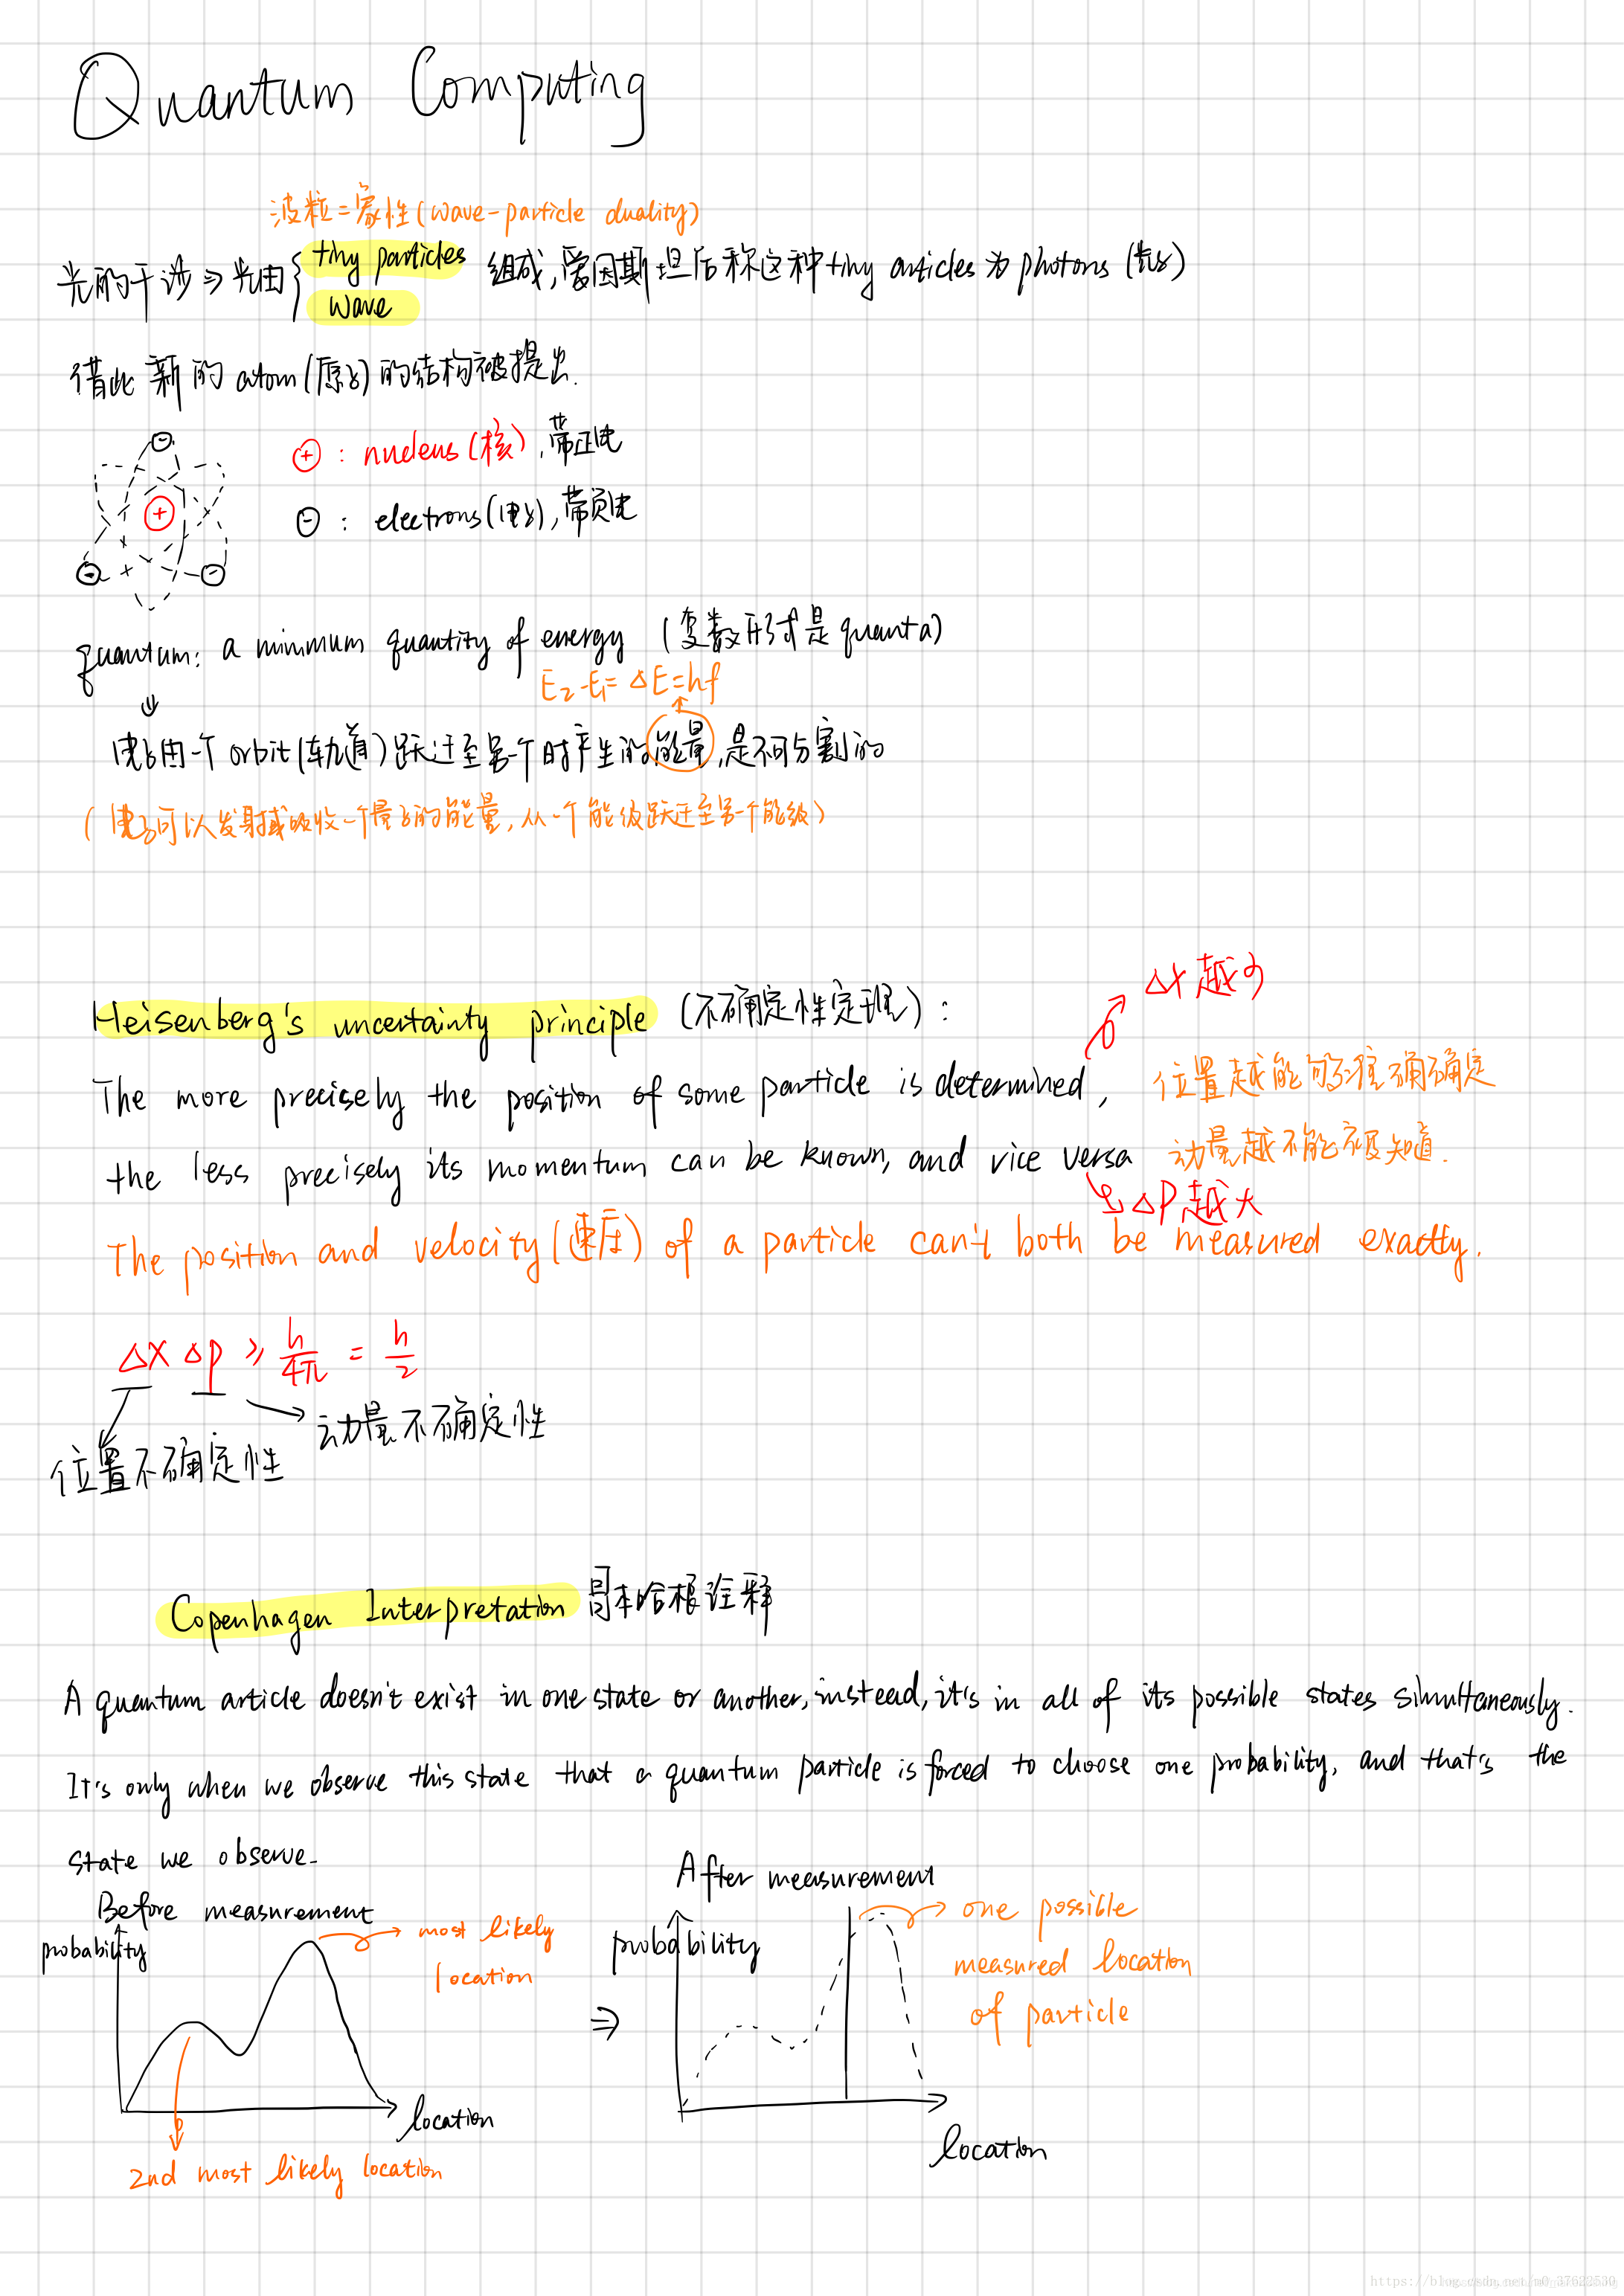 Quantum Computing
波粒二象性(wave-particle duality)
光的干涉⇒光由{ tiny particles 组成,爱因斯坦后称这种tiny articles为photons(光子)
wave
借此新的atom(原子)的结构被提出.
⊕ : nucleus(核),带正电
⊖ : electrons(电子),带负电
quantum: a minimum quantity of energy (复数形式是quanta)
E₂-E₁=ΔE=hf
⇓
电子由一个orbit(轨道)跃迁至另一个时产生的能量,是不可分割的
(电子可以发射或吸收一个量子的能量,从一个能级跃迁至另一个能级)
Δx越小
Heisenberg's uncertainty principle (不确定性定理):
The more precisely the position of some particle is determined, 位置越能够准确确定
the less precisely its momentum can be known, and vice versa 动量越不能被知道.
ΔP越大
The position and velocity(速度) of a particle can't both be measured exactly.
Δx Δp ≥ h/4π = h/2
动量不确定性
位置不确定性
Copenhagen Interpretation 哥本哈根诠释
A quantum article doesn't exist in one state or another, instead, it's in all of its possible states simultaneously.
It's only when we observe this state that a quantum particle is forced to choose one probability, and that's the
state we observe.
Before measurement
probability
most likely
location
location
2nd most likely location
⇒
After measurement
probability
one possible
measured location
of particle
location